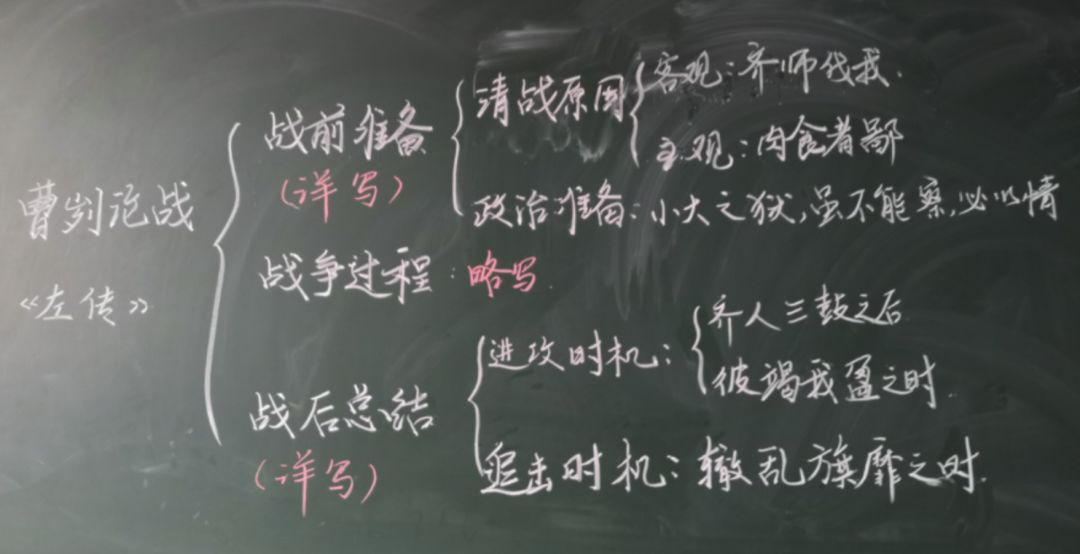 曹刿论战
《左传》
战前准备
(详写)
清战原因
客观:齐师伐我.
主观:肉食者鄙
政治准备:小大之狱,虽不能察,必以情
战争过程:略写.
战后总结
(详写)
进攻时机:
齐人三鼓之后
彼竭我盈之时.
追击时机:辙乱旗靡之时.